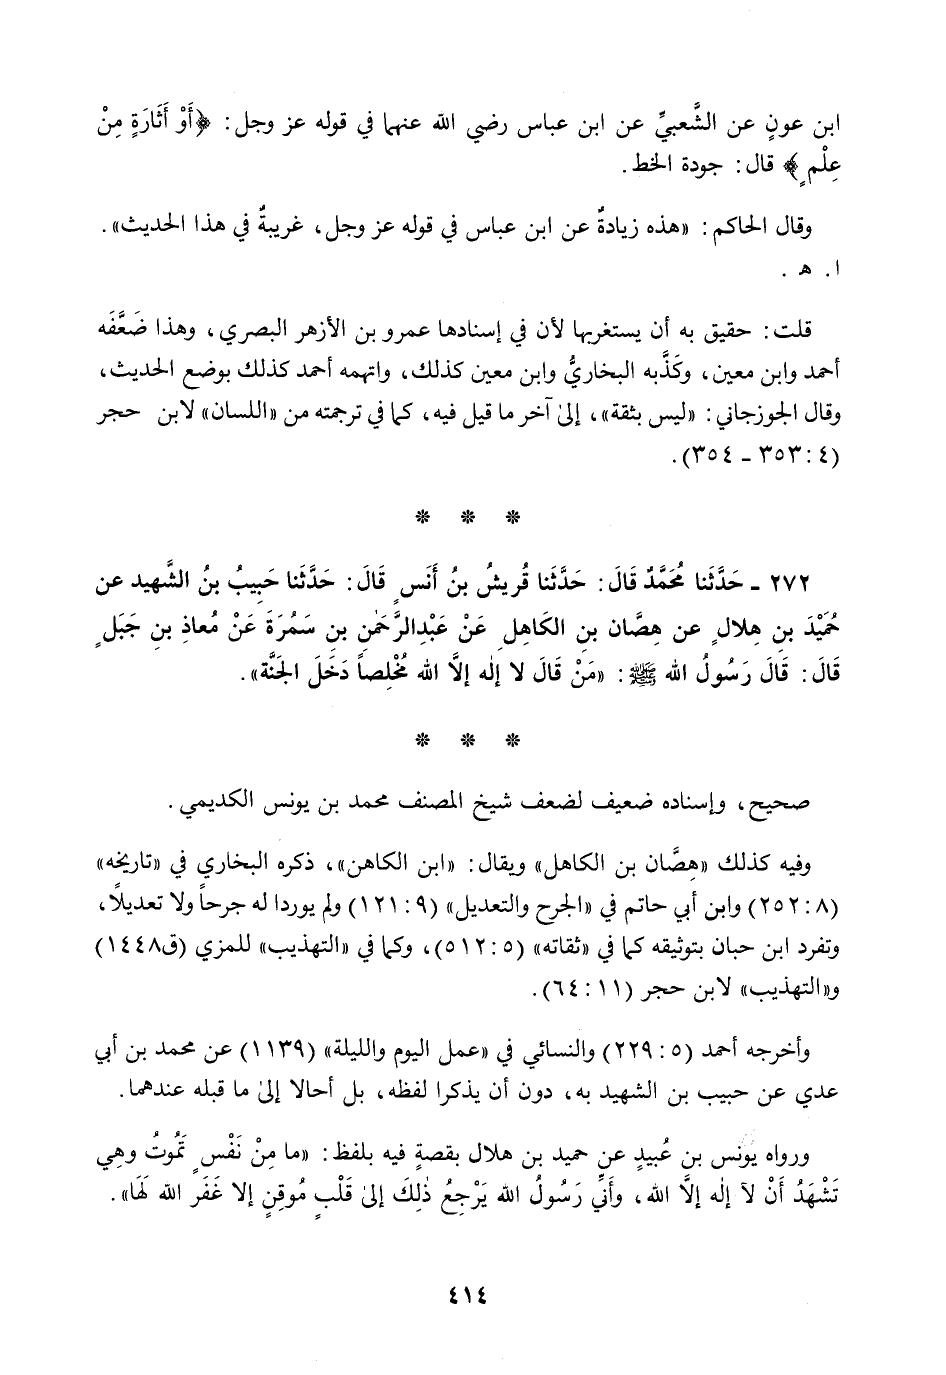 ابن عونٍ عن الشَّعبيِّ عن ابن عباس رضي الله عنهما في قوله عز وجل: ﴿أَوْ أَثَارَةٍ مِنْ
عِلْمٍ﴾ قال: جودة الخط.
وقال الحاكم: «هذه زيادةٌ عن ابن عباس في قوله عز وجل، غريبةٌ في هذا الحديث».
ا. هـ.
قلت: حقيق به أن يستغربها لأن في إسنادها عمرو بن الأزهر البصري، وهذا ضَعَّفَه
أحمد وابن معين، وكَذَّبه البخاريُّ وابن معين كذلك، واتهمه أحمد كذلك بوضع الحديث،
وقال الجوزجاني: «ليس بثقة»، إلىٰ آخر ما قيل فيه، كما في ترجمته من «اللسان» لابن حجر
(٤: ٣٥٣ ـ ٣٥٤).
* * *
٢٧٢ ـ حَدَّثَنا مُحَمَّدٌ قَالَ: حَدَّثَنا قُريشُ بنُ أَنَسٍ قَالَ: حَدَّثَنا حَبِيبُ بنُ الشَّهيد عن
حُمَيْدَ بنِ هِلالٍ عن هِصَّان بنِ الكَاهِلِ عَنْ عَبْدِالرَّحمٰنِ بنِ سَمُرَةَ عَنْ مُعاذِ بنِ جَبَلٍ
قَالَ: قَالَ رَسُولُ الله ﷺ: «مَنْ قَالَ لا إلٰه إلاَّ الله مُخْلِصاً دَخَلَ الجَنَّة».
* * *
صحيح، وإسناده ضعيف لضعف شيخ المصنف محمد بن يونس الكديمي.
وفيه كذلك «هِصَّان بن الكاهل» ويقال: «ابن الكاهن»، ذكره البخاري في «تاريخه»
(٨: ٢٥٢) وابن أبي حاتم في «الجرح والتعديل» (٩: ١٢١) ولم يوردا له جرحاً ولا تعديلاً،
وتفرد ابن حبان بتوثيقه كما في «ثقاته» (٥: ٥١٢)، وكما في «التهذيب» للمزي (ق١٤٤٨)
و«التهذيب» لابن حجر (١١: ٦٤).
وأخرجه أحمد (٥: ٢٢٩) والنسائي في «عمل اليوم والليلة» (١١٣٩) عن محمد بن أبي
عدي عن حبيب بن الشهيد به، دون أن يذكرا لفظه، بل أحالا إلىٰ ما قبله عندهما.
ورواه يُونس بن عُبيدٍ عن حميد بن هلال بقصةٍ فيه بلفظ: «ما مِنْ نَفْسٍ تَمُوتُ وهِي
تَشْهَدُ أَنْ لآ إلٰه إلاَّ الله، وأَنِّي رَسُولُ الله يَرْجِعُ ذٰلِكَ إلىٰ قَلْبٍ مُوقِنٍ إلا غَفَرَ الله لَهَا».
٤١٤